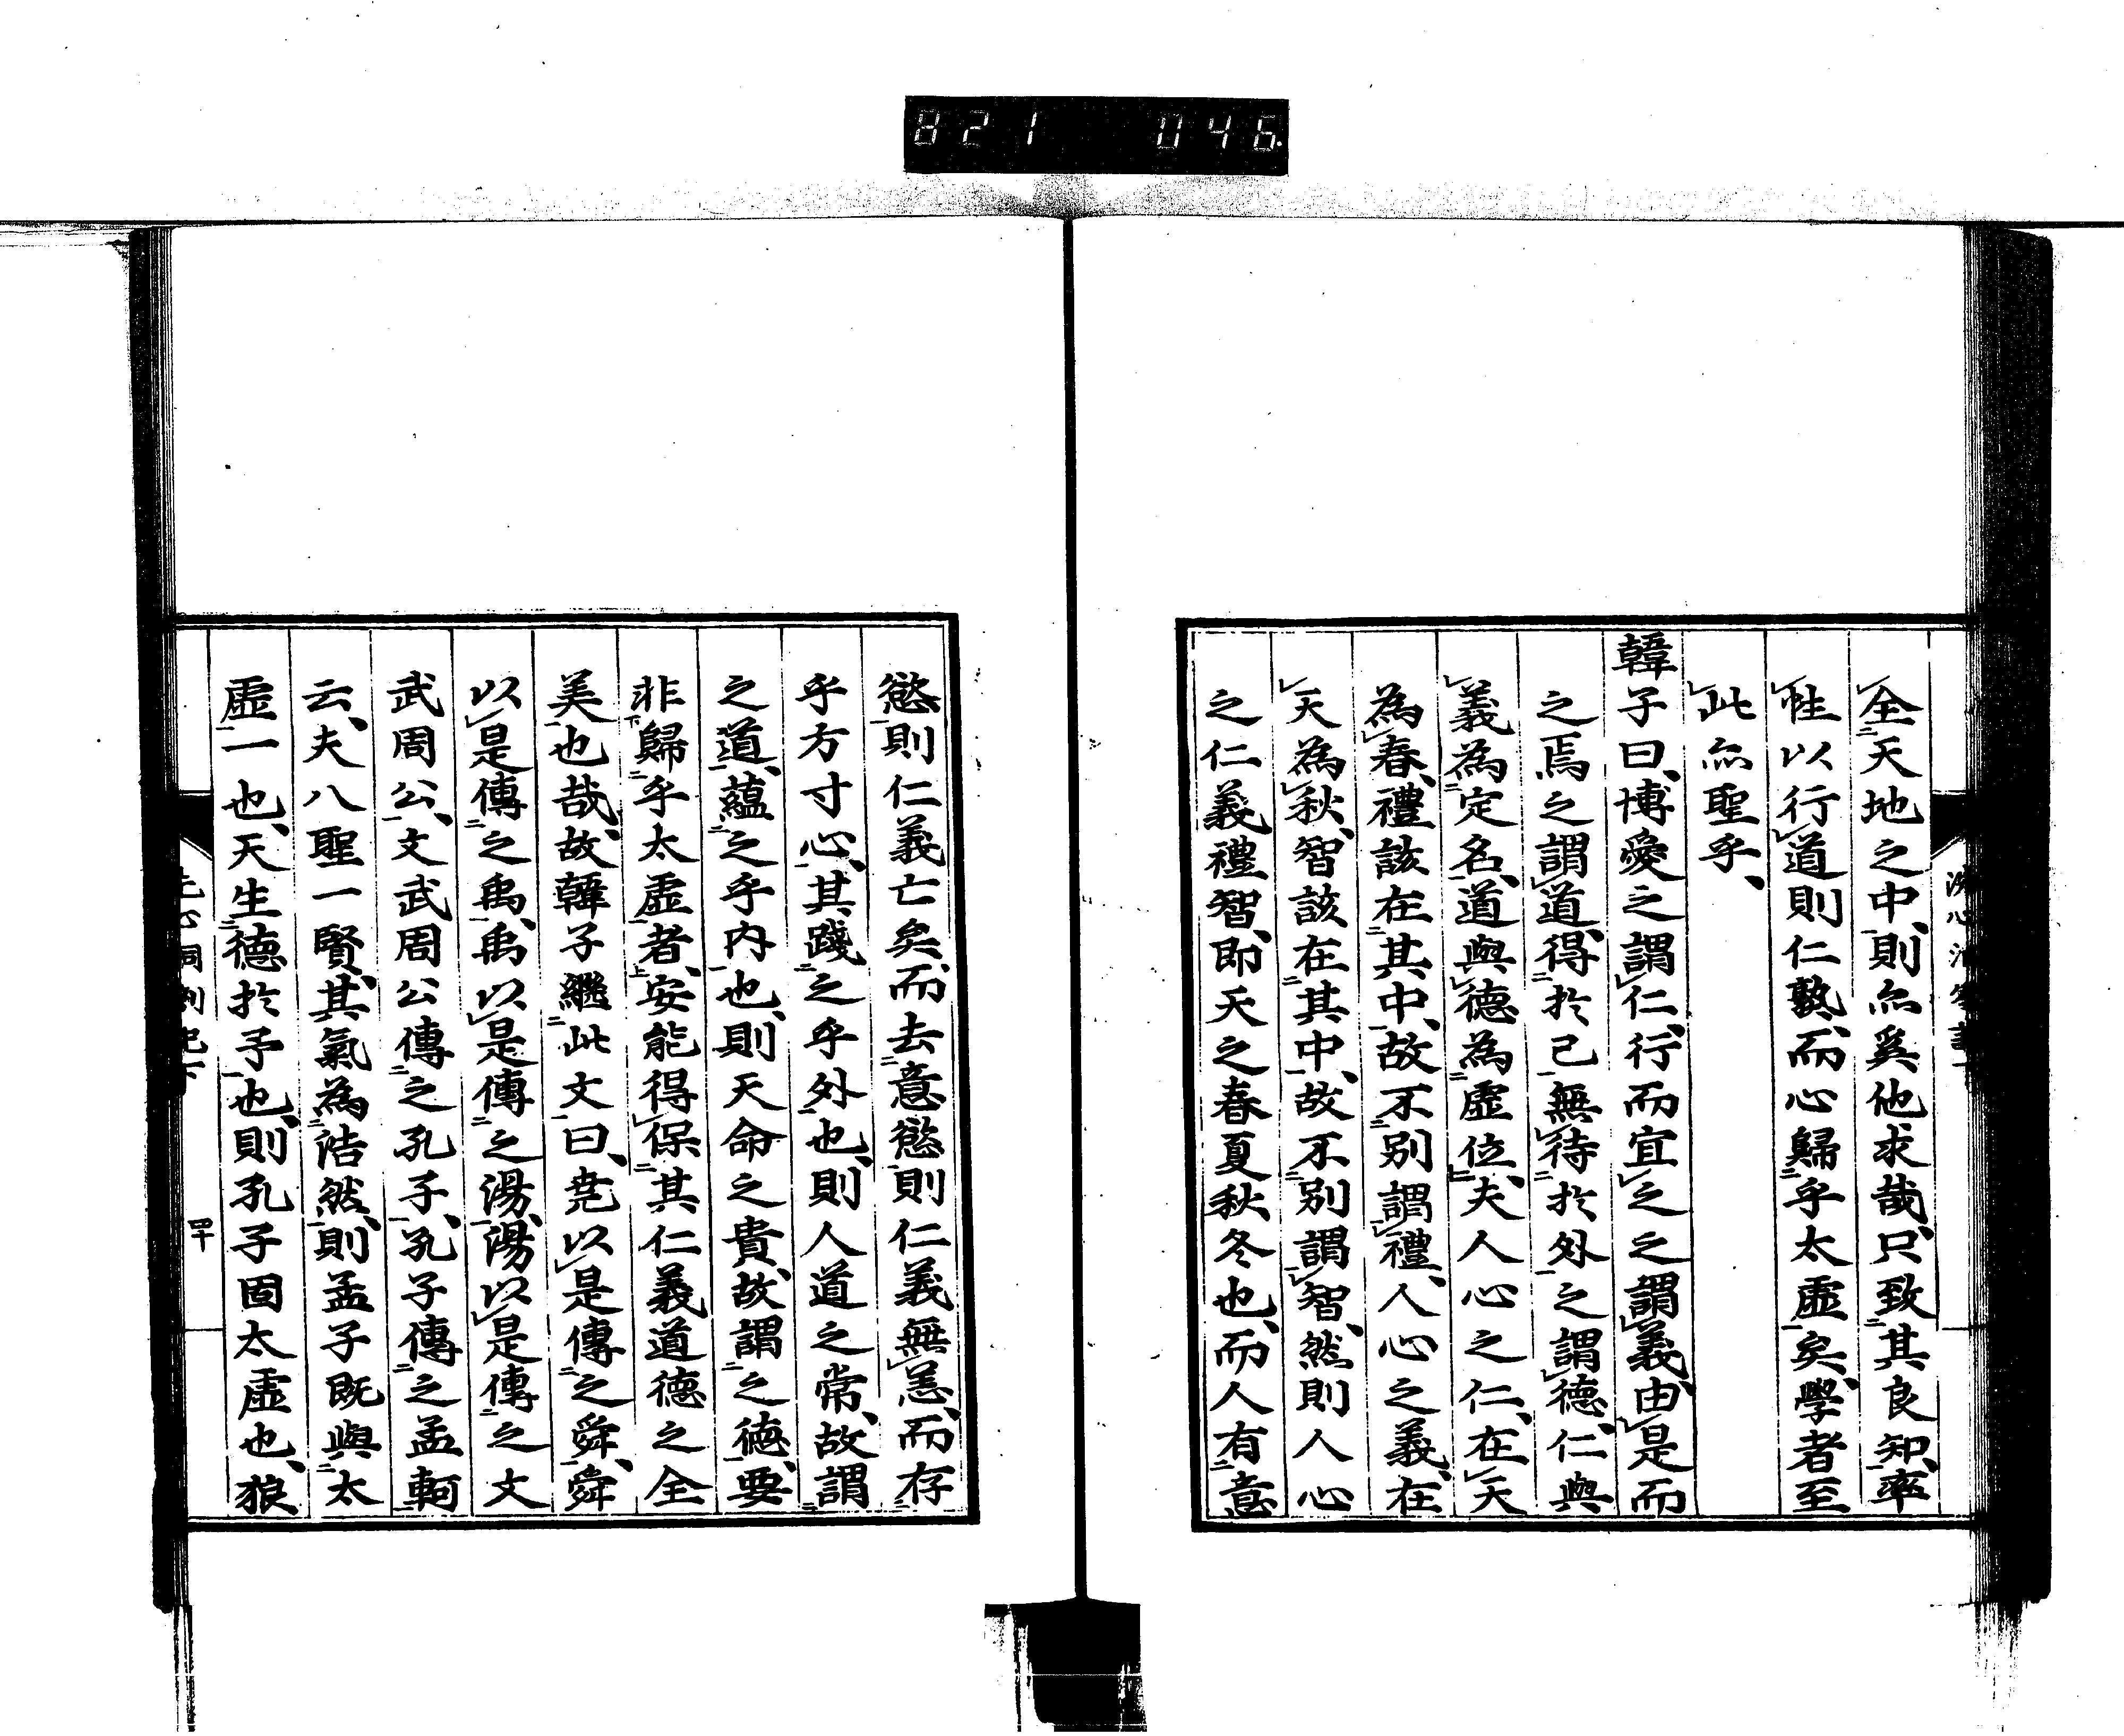 821 046.
全天地之中、則亦奚他求哉、只致其良知、率
性以行道則仁熟、而心歸乎太虛矣、學者至
此亦聖乎、
韓子曰、博愛之謂仁、行而宜之之謂義、由是而
之焉之謂道、得於己無待於外之謂德、仁與
義為定名、道與德為虛位、夫人心之仁、在天
為春、禮該在其中、故不別謂禮、人心之義、在
天為秋、智該在其中、故不別謂智、然則人心
之仁義禮智、即天之春夏秋冬也、而人有意
慾則仁義亡矣、而去意慾則仁義無恙、而存
乎方寸心、其踐之乎外也、則人道之常、故謂
之道、蘊之乎內也、則天命之貴、故謂之德、要
非歸乎太虛者、安能得保其仁義道德之全
美也哉、故韓子繼此文曰、堯以是傳之舜、舜
以是傳之禹、禹以是傳之湯、湯以是傳之文
武周公、文武周公傳之孔子、孔子傳之孟軻
云、夫八聖一賢、其氣為浩然、則孟子既與太
虛一也、天生德於予也、則孔子固太虛也、狼
四十